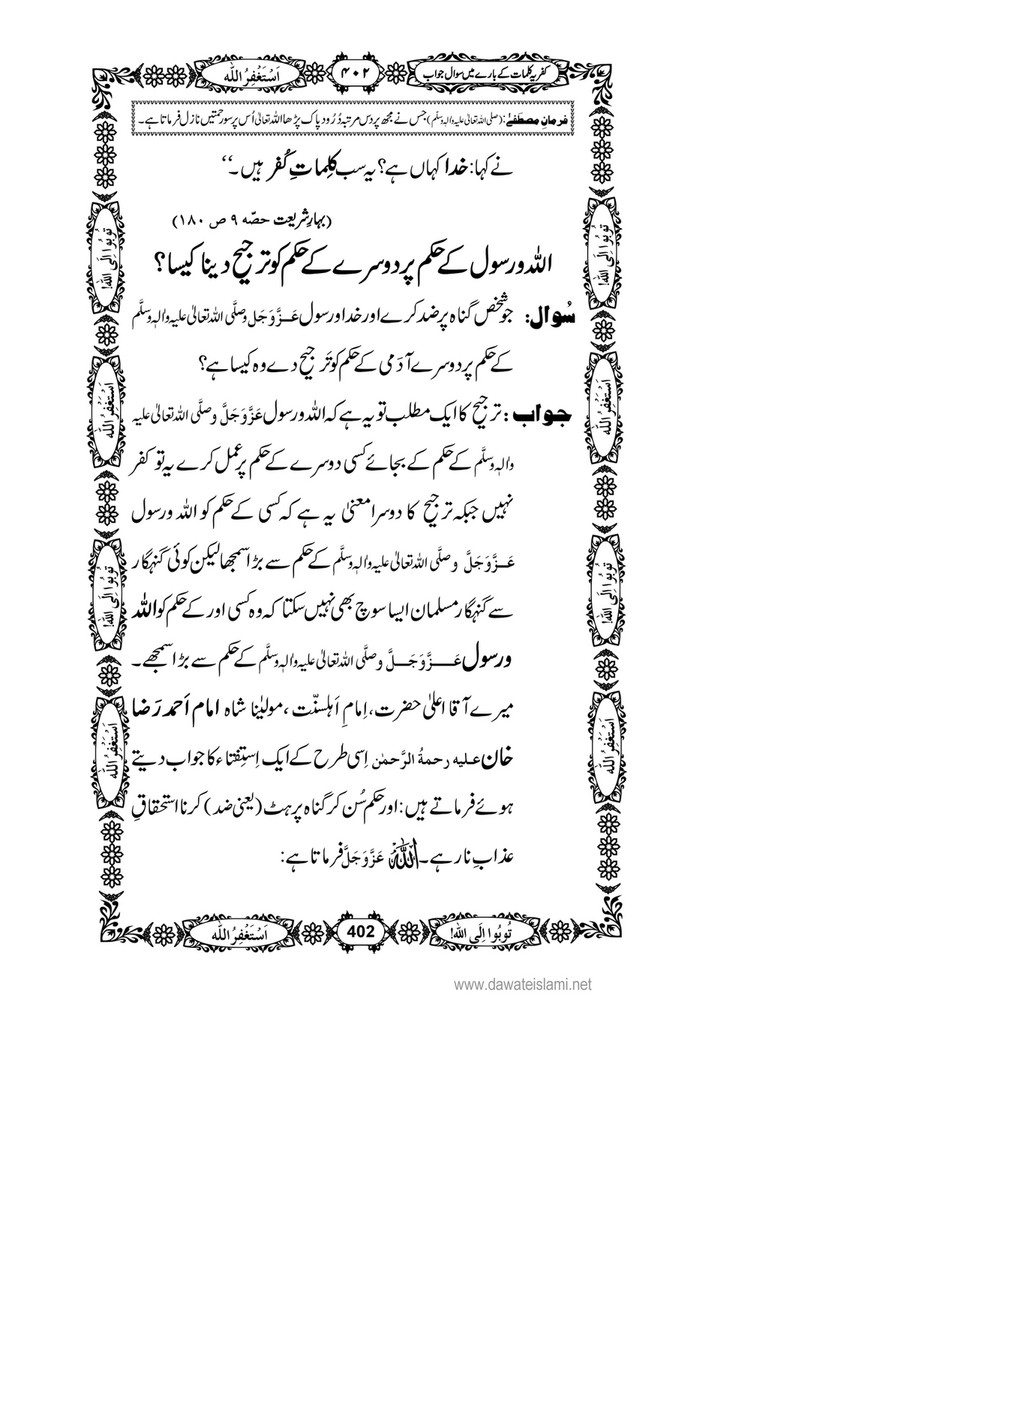 کفریہ کلمات کے بارے میں سوال جواب
۴۰۲
اَسْتَغْفِرُ اللہ
فرمانِ مصطَفٰے: (صلی اللہ تعالیٰ علیہ والہٖ وسلّم) جس نے مجھ پر دس مرتبہ دُرُود پاک پڑھا اللہ تعالیٰ اُس پر سو رحمتیں نازل فرماتا ہے۔
نے کہا: خدا کہاں ہے؟ یہ سب کلِماتِ کُفر ہیں۔‘‘
(بہارِ شریعت حصّہ ۹ ص ۱۸۰)
اللہ ورسول کے حکم پر دوسرے کے حکم کو ترجیح دینا کیسا؟
سُوال: جو شخص گناہ پر ضد کرے اور خدا و رسول عَزَّوَجَل وصلَّی اللہ تعالیٰ علیہ والہٖ وسلَّم
کے حکم پر دوسرے آدَمی کے حکم کو تَرجیح دے وہ کیسا ہے؟
جواب: ترجیح کا ایک مطلب تو یہ ہے کہ اللہ ورسول عَزَّوَجَلَّ وصلَّی اللہ تعالیٰ علیہ
والہٖ وسلَّم کے حکم کے بجائے کسی دوسرے کے حکم پر عمل کرے یہ تو کفر
نہیں جبکہ ترجیح کا دوسرا معنیٰ یہ ہے کہ کسی کے حکم کو اللہ ورسول
عَزَّوَجَلَّ وصلَّی اللہ تعالیٰ علیہ والہٖ وسلَّم کے حکم سے بڑا سمجھا لیکن کوئی گنہگار
سے گنہگار مسلمان ایسا سوچ بھی نہیں سکتا کہ وہ کسی اور کے حکم کو اللہ
ورسول عَزَّوَجَلَّ وصلَّی اللہ تعالیٰ علیہ والہٖ وسلَّم کے حکم سے بڑا سمجھے۔
میرے آقا اعلیٰ حضرت، اِمامِ اَہلسنّت، مولیٰنا شاہ امام اَحمد رَضا
خان علیہ رحمۃُ الرَّحمٰن اِسی طرح کے ایک اِستِفتاء کا جواب دیتے
ہوئے فرماتے ہیں: اور حکم سُن کر گناہ پر ہٹ (یعنی ضد) کرنا استحقاقِ
عذابِ نار ہے۔ اللہ عَزَّوَجَلَّ فرماتا ہے:
تُوبُوا اِلَی اللہ!
اَسْتَغْفِرُ اللہ
تُوبُوا اِلَی اللہ!
اَسْتَغْفِرُ اللہ
تُوبُوا اِلَی اللہ!
اَسْتَغْفِرُ اللہ
تُوبُوا اِلَی اللہ!
اَسْتَغْفِرُ اللہ
تُوبُوا اِلَی اللہ!
402
اَسْتَغْفِرُ اللہ
www.dawateislami.net